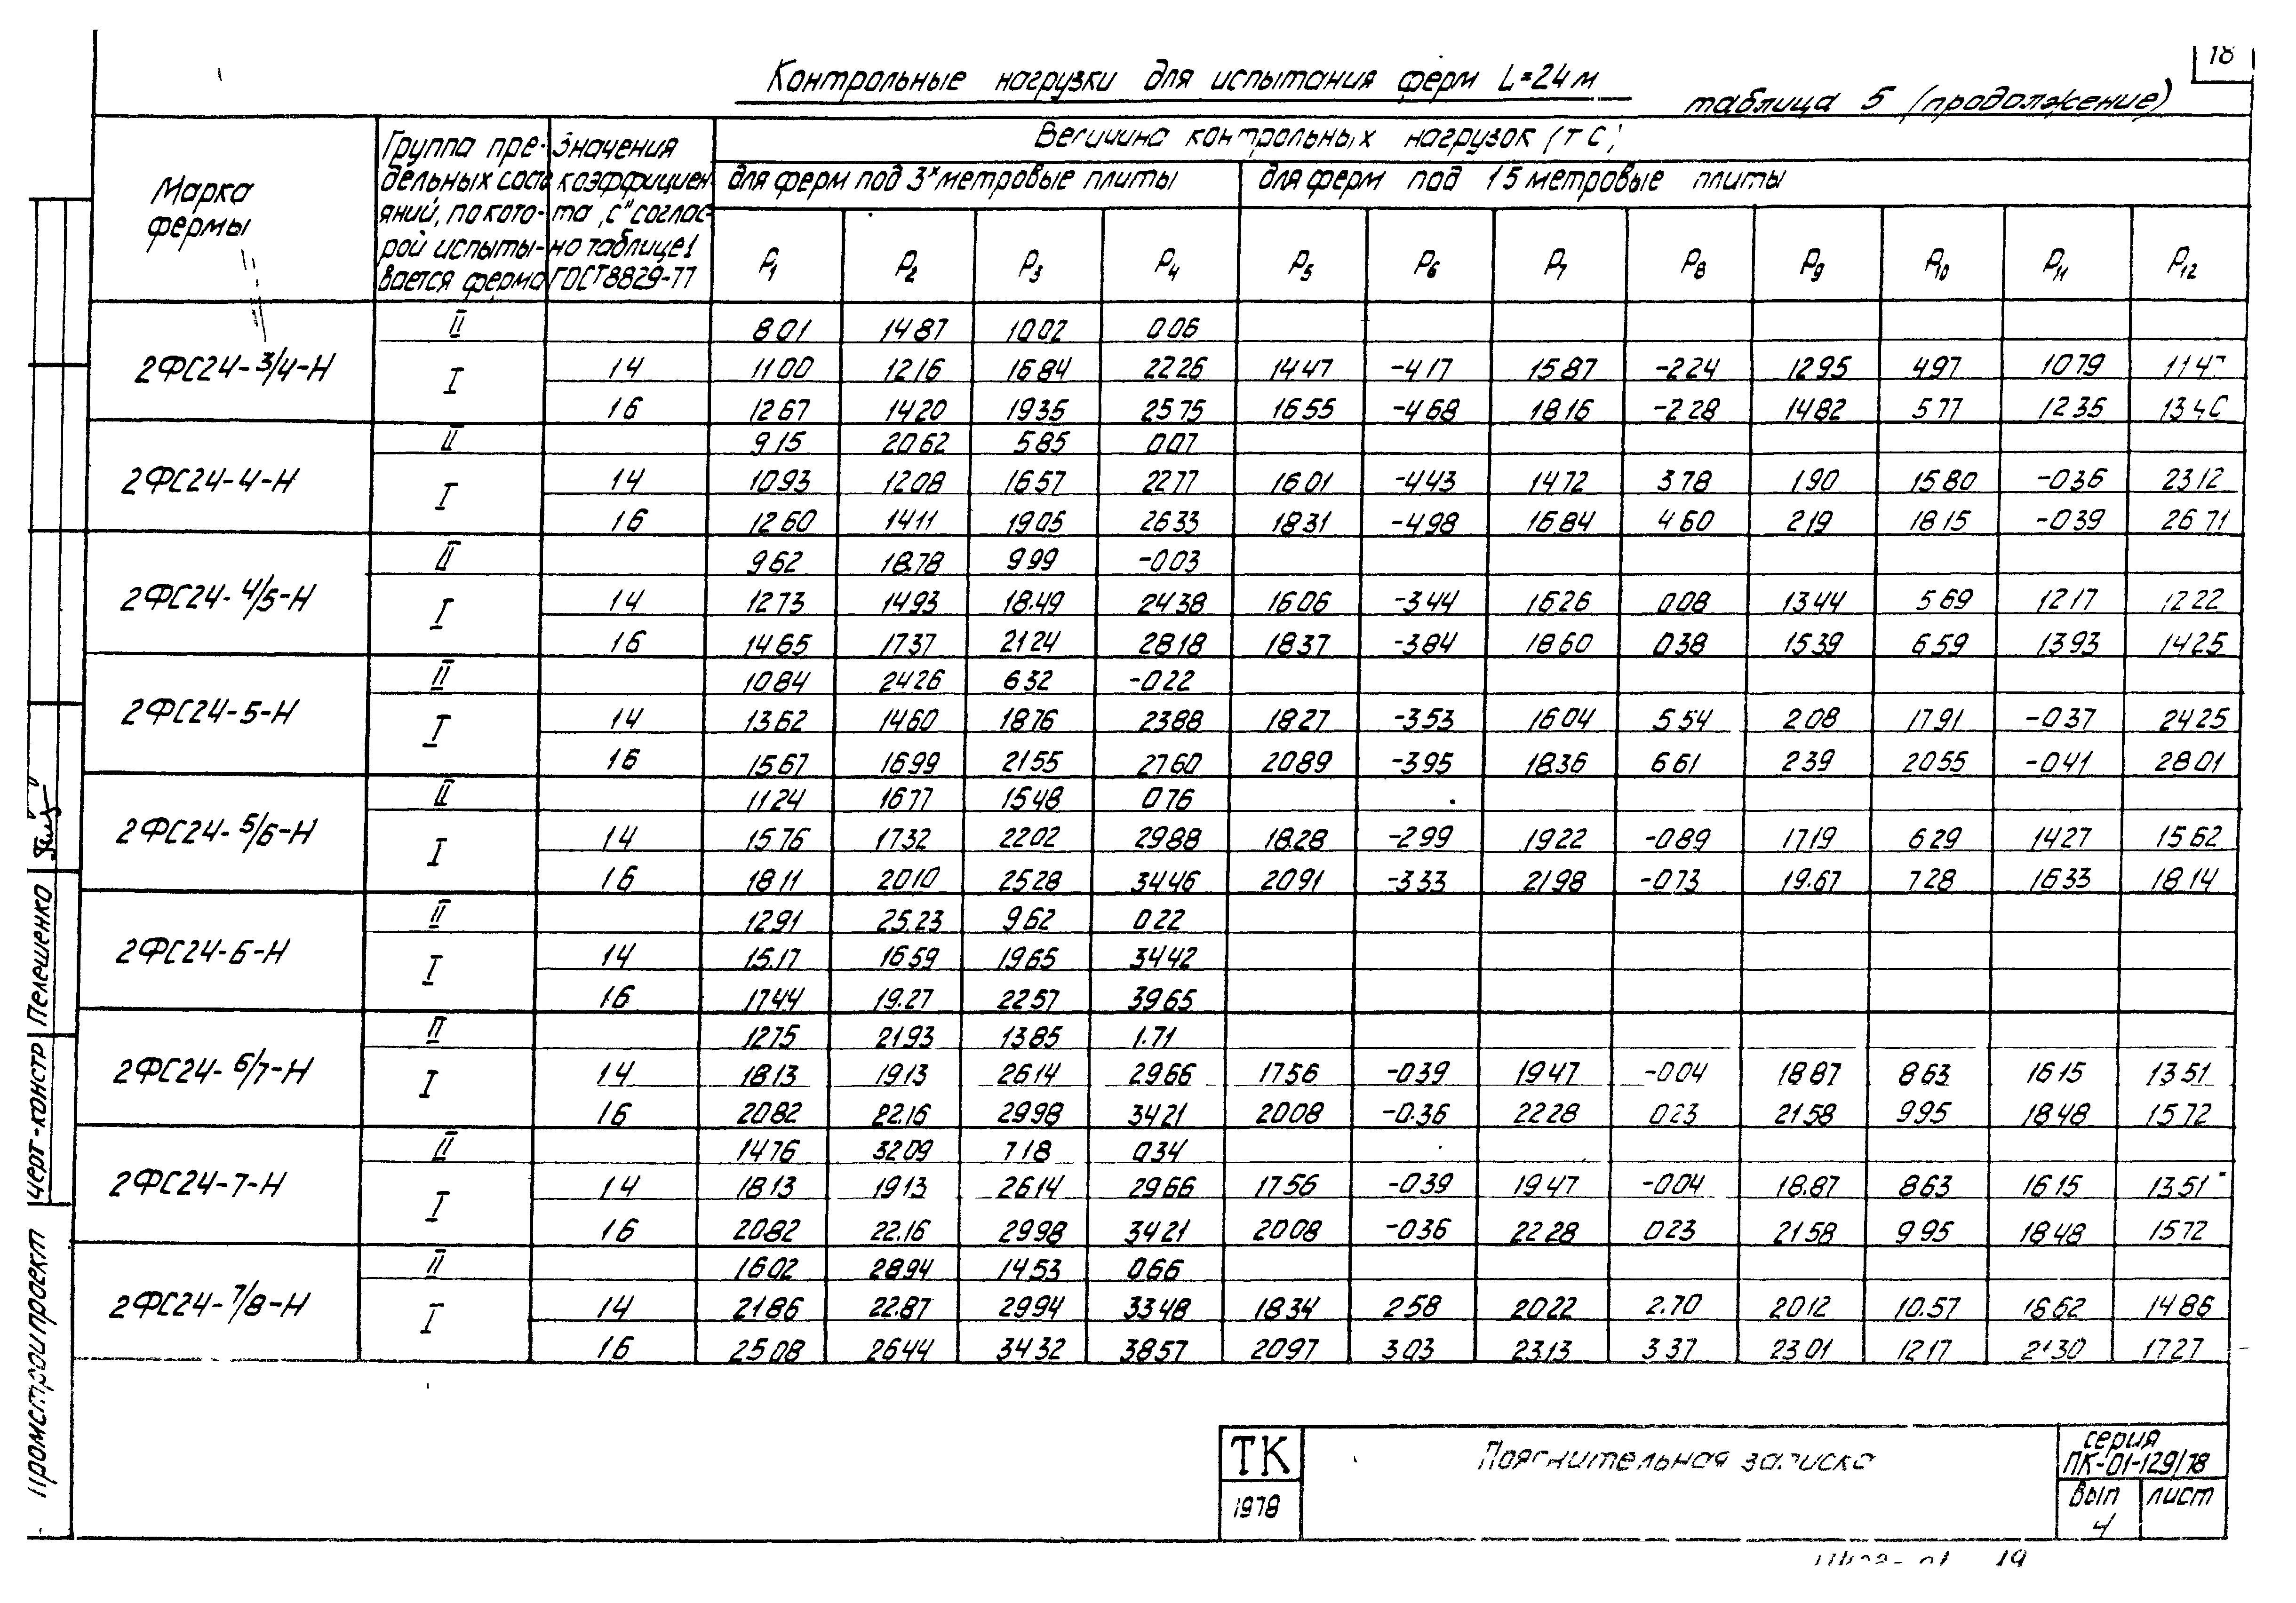 18
Контрольные нагрузки для испытания ферм L=24м
таблица 5 (продолжение)
Марка фермы
Группа пре-
дельных сост
яний, по кото-
рой испыты-
вается ферма
Значения
коэффициен
та „С" соглас-
но таблице 1
ГОСТ 8829-77
Величина контрольных нагрузок (тс)
для ферм под 3х метровые плиты
для ферм под 15 метровые плиты
P1 P2 P3 P4 P5 P6 P7 P8 P9 P10 P11 P12
2ФС24-3/4-Н
II 801 1487 1002 006
I 14 1100 1216 1684 2226 1447 -417 1587 -224 1295 497 1079 1147
16 1267 1420 1935 2575 1655 -468 1816 -228 1482 577 1235
2ФС24-4-Н
II 915 2062 585 007
I 14 1093 1208 1657 2277 1601 -443 1472 378 190 1580 -036 2312
16 1260 1411 1905 2633 1831 -498 1684 460 219 1815 -039 2671
2ФС24-4/5-Н
II 962 18.78 999 -003
I 14 1273 1493 18.49 2438 1606 -344 1626 008 1344 569 1217 1222
16 1465 1737 2124 2818 1837 -384 1860 038 1539 659 1393 1425
2ФС24-5-Н
II 1084 2426 632 -022
I 14 1362 1460 1876 2388 1827 -353 1604 554 208 1791 -037 2425
16 1567 1699 2155 2760 2089 -395 1836 661 239 2055 -041 2801
2ФС24-5/6-Н
II 1124 1677 1548 076
I 14 1576 1732 2202 2988 1828 -299 1922 -089 1719 629 1427 1562
16 1811 2010 2528 3446 2091 -333 2198 -073 19.67 728 1633 1814
2ФС24-6-Н
II 1291 25.23 962 022
I 14 15.17 1659 1965 3442
16 1744 19.27 2257 3965
2ФС24-6/7-Н
II 1275 2193 1385 1.71
I 14 1813 1913 2614 2966 1756 -039 1947 -004 1887 863 1615 1351
16 2082 22.16 2998 3421 2008 -036 2228 023 2158 995 1848 1572
2ФС24-7-Н
II 1476 3209 718 034
I 14 1813 1913 2614 2966 1756 -039 1947 -004 18.87 863 1615 1351
16 2082 22.16 2998 3421 2008 -036 2228 023 2158 995 1848 1572
2ФС24-7/8-Н
II 1602 2894 1453 066
I 14 2186 22.87 2994 3348 1834 258 2022 2.70 2012 10.57 1486
16 2508 2644 3432 3857 2097 303 23.13 337 2301 1217 1727
Промстройпроект
черт-констр Пелешенко
ТК
1978
Пояснительная записка
серия
ПК-01-129/78
Вып
4
лист
19